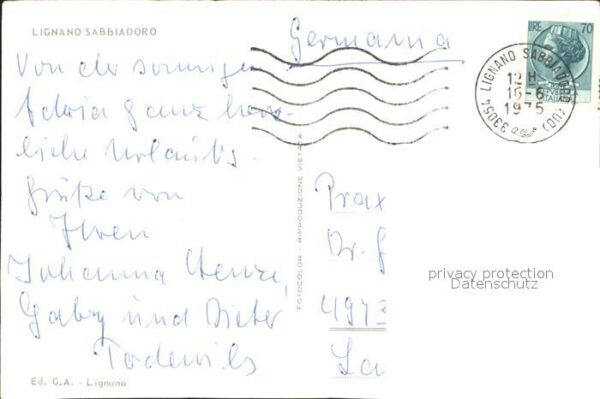 LIGNANO SABBIADORO
Germania
LIRE 70
33054 LIGNANO SABBIADORO (UD)
12 H
16-6
1975
Von der sonnigen
Adria ganz herz-
liche Urlaubs-
grüße von
Ihren
Johanna Henze,
Gaby und Dieter
FOTOCOLOR - RIPRODUZIONE VIETATA
Prax
Dr.
4973
privacy protection
Datenschutz
Ed. G.A. - Lignano